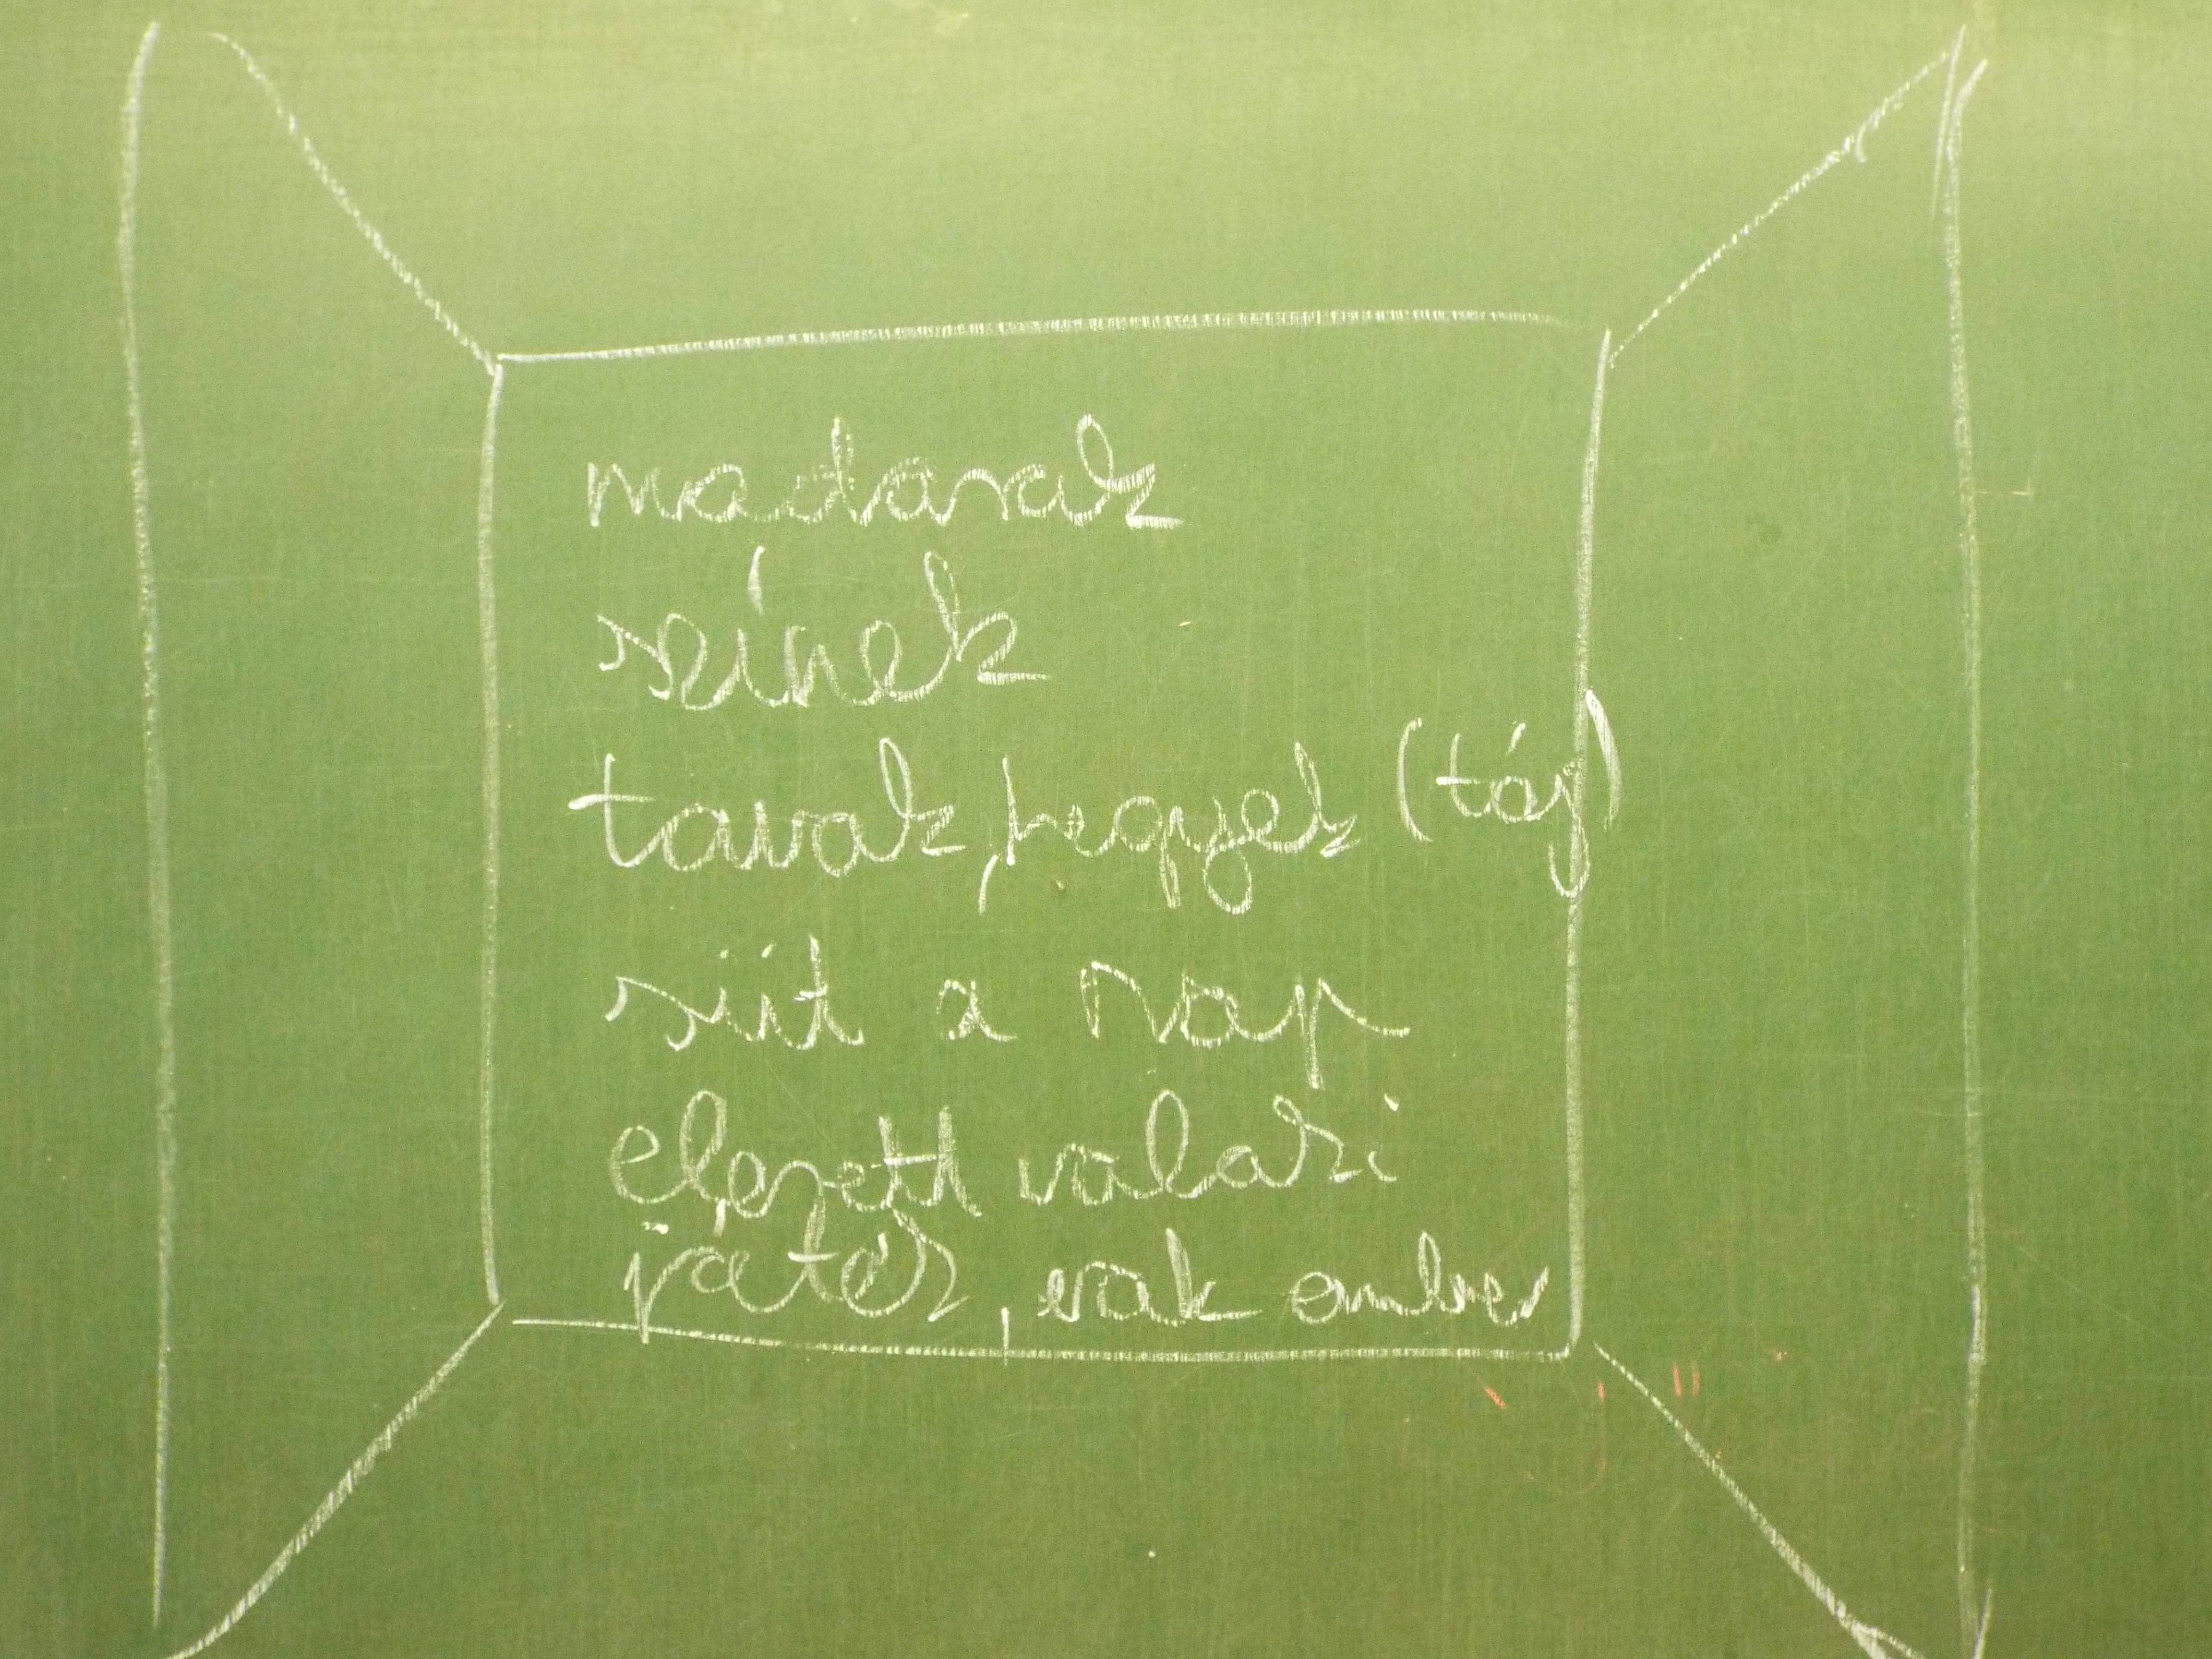 madarak
színek
tavak, hegyek (táj)
süt a nap
elesett valaki
játék, vak ember